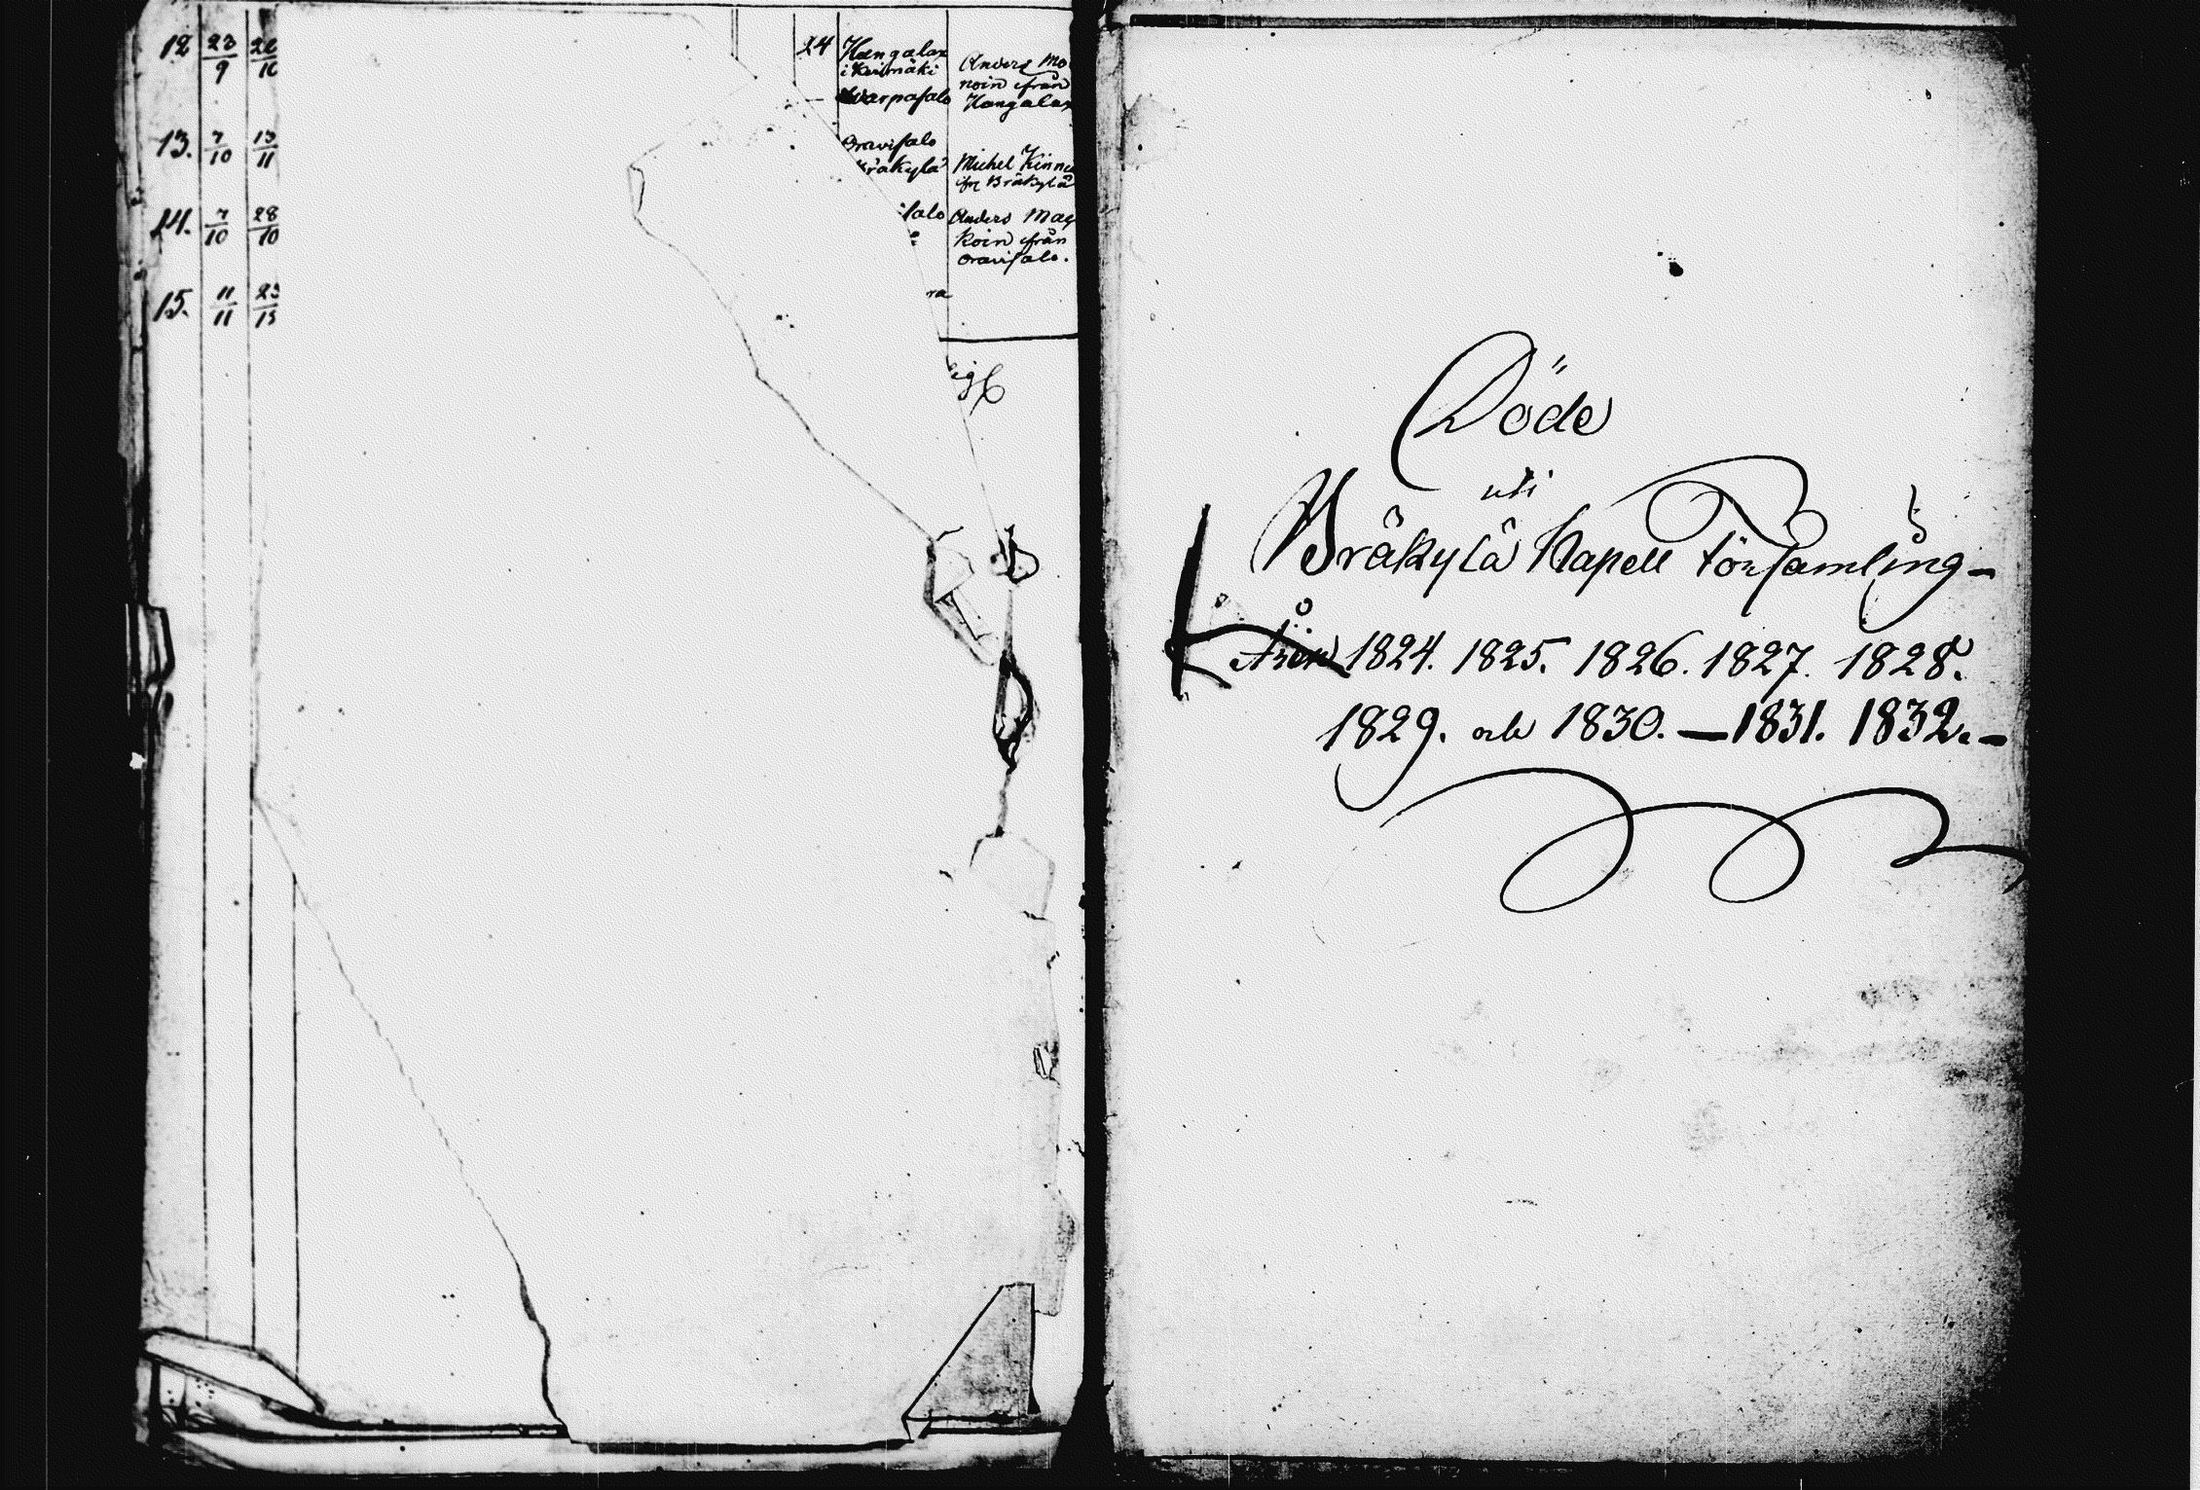 12 23/9
24 Hangalax
i Kerimäki
Warpasalo
Anders Mo
noin ifrån
Hangalax
13. 7/10 13/11
Oravisalo
Bräkylä
Michel Kinnu
ifr Bräkylä
14. 7/10 28/10
salo
Anders Mas
koin ifrån
Oravisalo.
15. 11/11
ra
Döde
uti
Bräkylä Kapell Församling-
Åren 1824. 1825. 1826. 1827. 1828.
1829. och 1830. — 1831. 1832. -